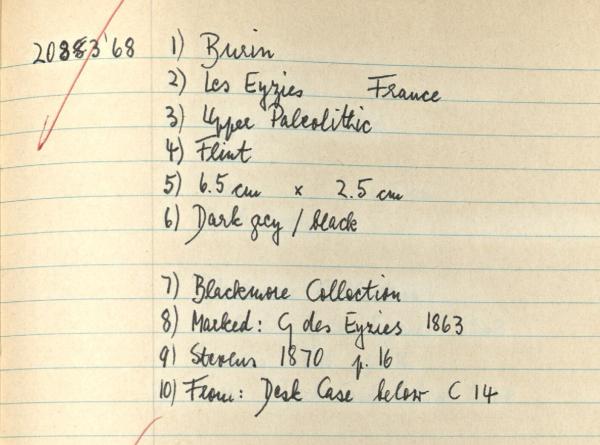 20883'68 1) Burin
2) Les Eyzies France
3) Upper Paleolithic
4) Flint
5) 6.5 cm x 2.5 cm
6) Dark grey / black
7) Blackmore Collection
8) Marked: G des Eyzies 1863
9) Stevens 1870 p. 16
10) From: Desk Case below C 14